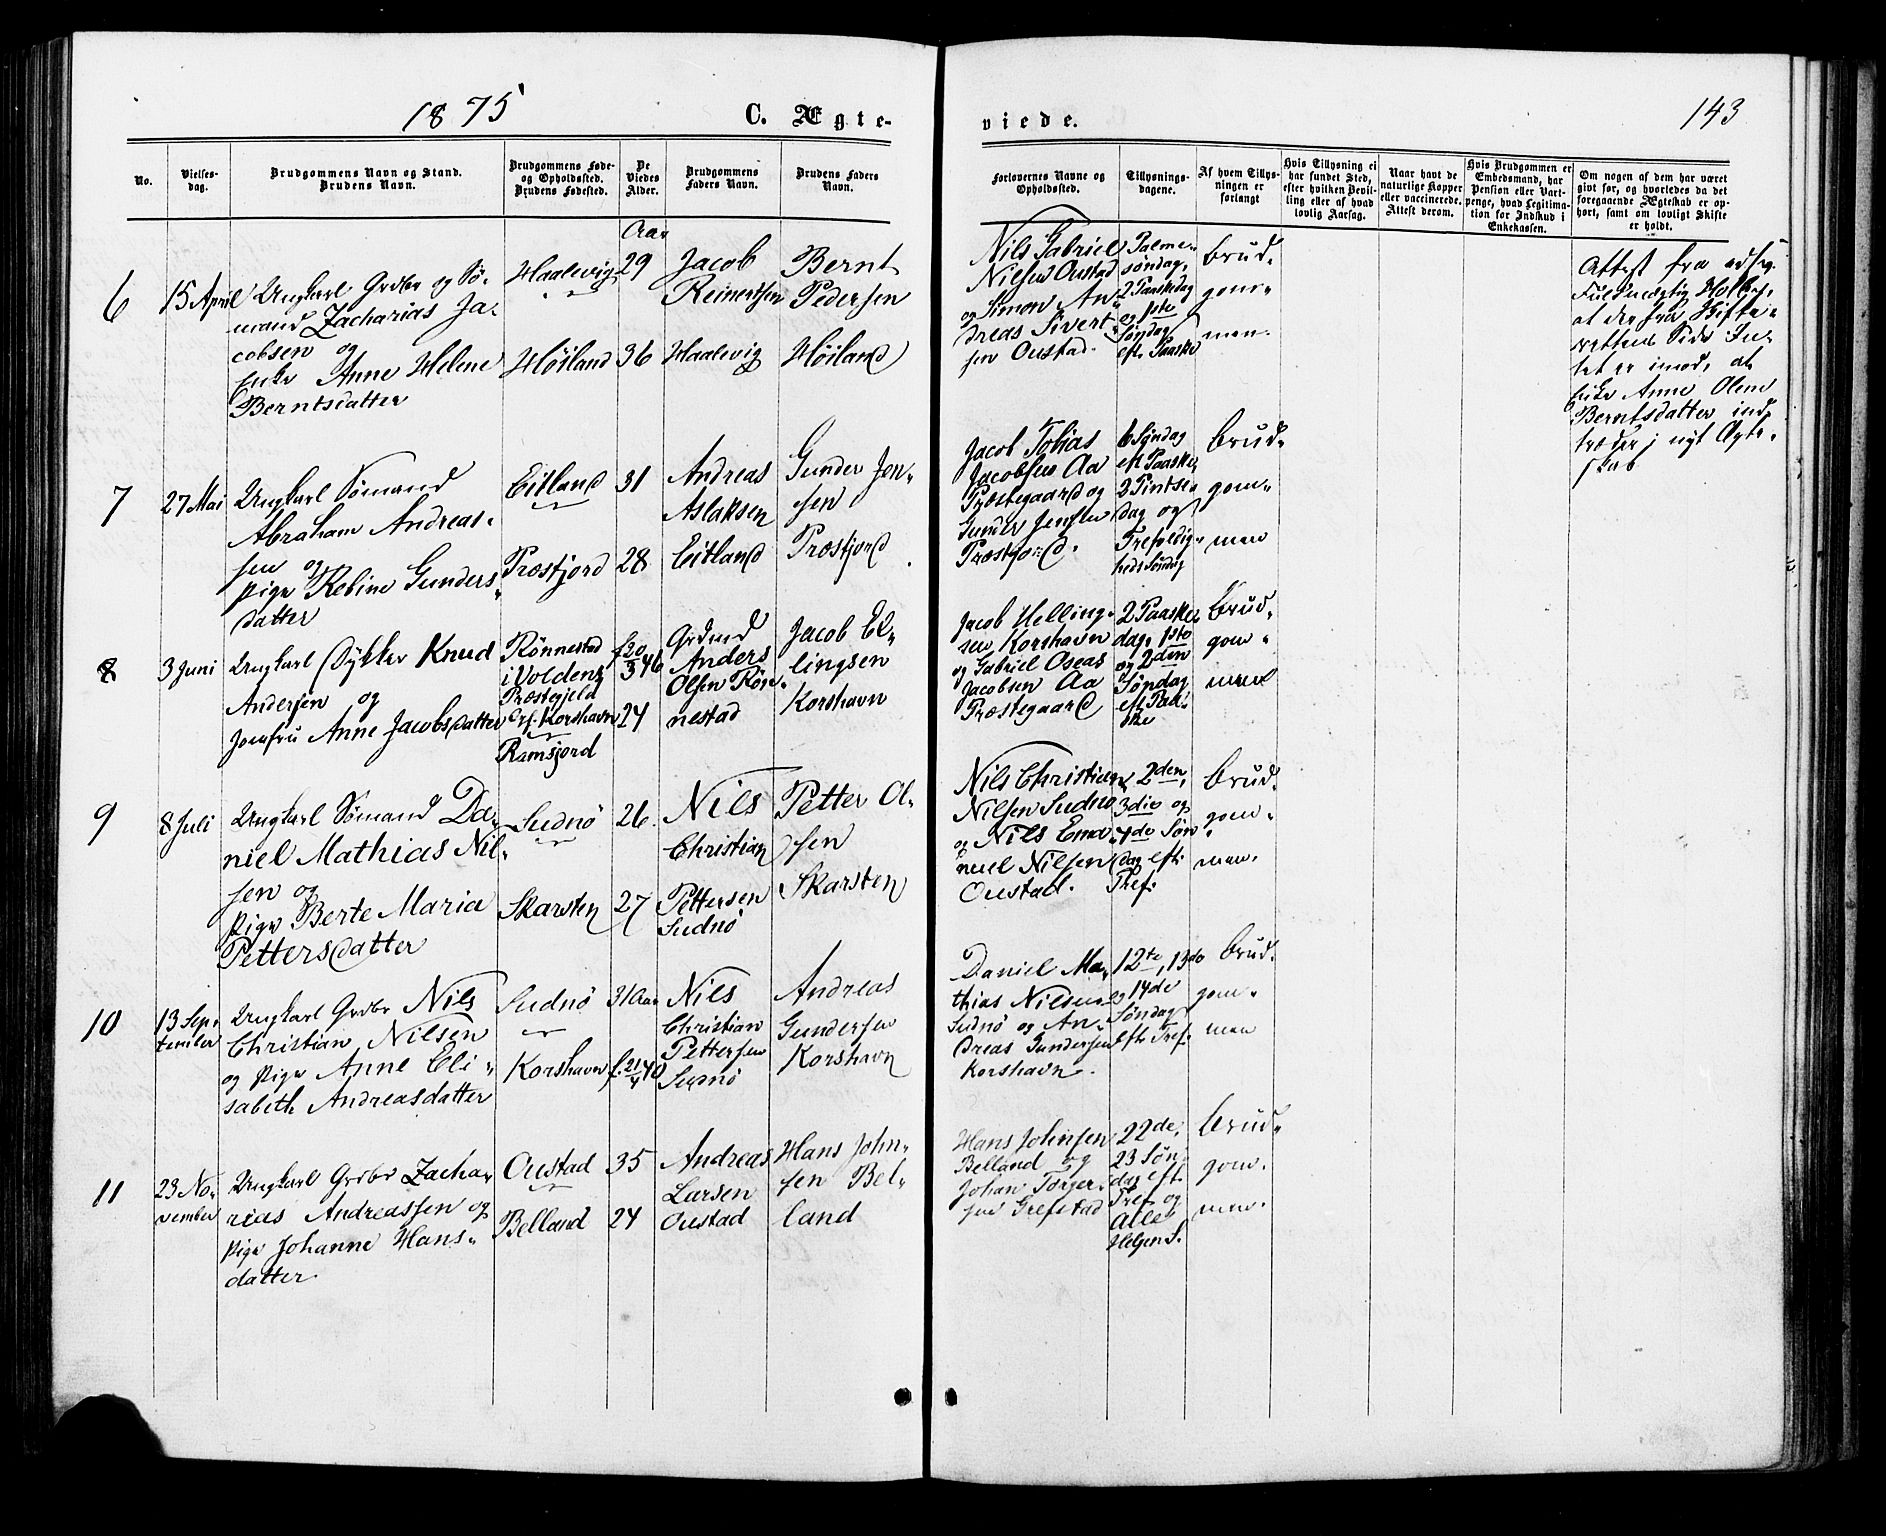 1875
C. Ægte-
viede.
143
No.
Vielses-
dag.
Brudgommens Navn og Stand.
Brudens Navn.
Brudgommens Føde-
og Opholdssted.
Brudens Fødested.
De
Viedes
Alder.
Brudgommens
Faders Navn.
Brudens Faders
Navn.
Forlovernes Navne og
Opholdssted.
Tillysnings-
dagene.
Af hvem Tillys-
ningen er
forlangt
Hvis Tillysning ei
har fundet Sted,
efter hvilken Bevil-
ling eller af hvad
lovlig Aarsag.
Naar havt de
naturlige Kopper
eller vaccinerede.
Attest derom.
Hvis Brudgommen er
Embedsmand, har
Pension eller Vart-
penge, hvad Legitima-
tion for Indskud i
Enkekassen.
Om nogen af dem har været
givt før, og hvorledes da det
foregaaende Ægteskab er op-
hørt, samt om lovligt Skifte
er holdt.
6
15 April
Ungkarl Grdbr og Sø-
mand Zacharias Ja-
cobsen og
Enke Anne Helene
Berntsdatter
Haalevig
Høiland
Aar
29
36
Jacob
Reinertsen
Haalevig
Bernt
Pedersen
Høiland
Nils Gabriel
Nilsen Oustad
og Simon An-
dreas Sivert-
sen Oustad.
Palme-
søndag,
2 Paaskedag
og 1ste
Søndag
eft. Paaske
Brud-
gom-
men.
Attest fra
Fuldmægtig
at der fra Skifte-
rettens Side In-
tet er imod, at
Enke Anne Olene
Berntsdatter ind-
træder i nyt Ægte-
skab
7
27 Mai
Ungkarl Sømand
Abraham Andreas-
sen og
Pige Rebine Gunders-
datter
Eitland
Præstjord
31
28
Andreas
Aslaksen
Eitland
Gunder Jen-
sen
Præstjord
Jacob Tobias
Jacobsen Aa
Præstegaard og
Gunder Jensen
Præstjord.
6 Søndag
eft Paaske,
2 Pintse-
dag og
Trefoldig-
heds Søndag
Brud-
gom-
men
8
3 Juni
Ungkarl Dykker Knud
Andersen og
Jomfru Anne Jacobsdatter
Rønnestad
i Voldens
Præstegjeld
Opf. Korshavn
Ramsjord
f. 20/3 46
24
Grdmd
Anders
Olsen Røn-
nestad
Jacob El-
lingsen
Korshavn
Jacob Helling-
sen Korshavn
og Gabriel Oseas
Jacobsen Aa
Præstegaard
2 Paaske
dag, 1ste
og 2den
Søndag
eft Paa-
ske
Brud-
gom-
men
9
8 Juli
Ungkarl Sømand Da-
niel Mathias Nil-
sen og
Pige Berte Maria
Pettersdatter
Sudnø
Skarsten
26
27
Nils
Christian
Pettersen
Sudnø
Petter Ol-
sen
Skarsten
Nils Christian
Nilsen Sudnø
og Nils Ema-
nuel Nilsen
Oustad.
2den,
3die og
4de Søn-
dag eft.
Tref.
Brud-
gom-
men.
10
13 Sep-
tember
Ungkarl Grdbr Nils
Christian Nilsen
og Pige Anne Eli-
sabeth Andreasdatter
Sudnø
Korshavn
31 Aar
f. 21/4 40
Nils
Christian
Pettersen
Sudnø
Andreas
Gundersen
Korshavn
Daniel Ma-
thias Nilsen
Sudnø og An-
dreas Gundersen
Korshavn.
12te, 13de
og 14de
Søndag
eft. Tref.
Brud-
gom-
men
11
23 No-
vember
Ungkarl Grdbr Zacha-
rias Andreassen og
Pige Johanne Hans-
datter.
Oustad
Belland
35
24
Andreas
Larsen
Oustad
Hans John-
sen Bel-
land
Hans Johnsen
Belland og
Johan Torger-
sen Grefstad
22de,
23 Søn-
dag eft.
Tref. og
Alle
Helgen S.
Brud-
gom-
men.